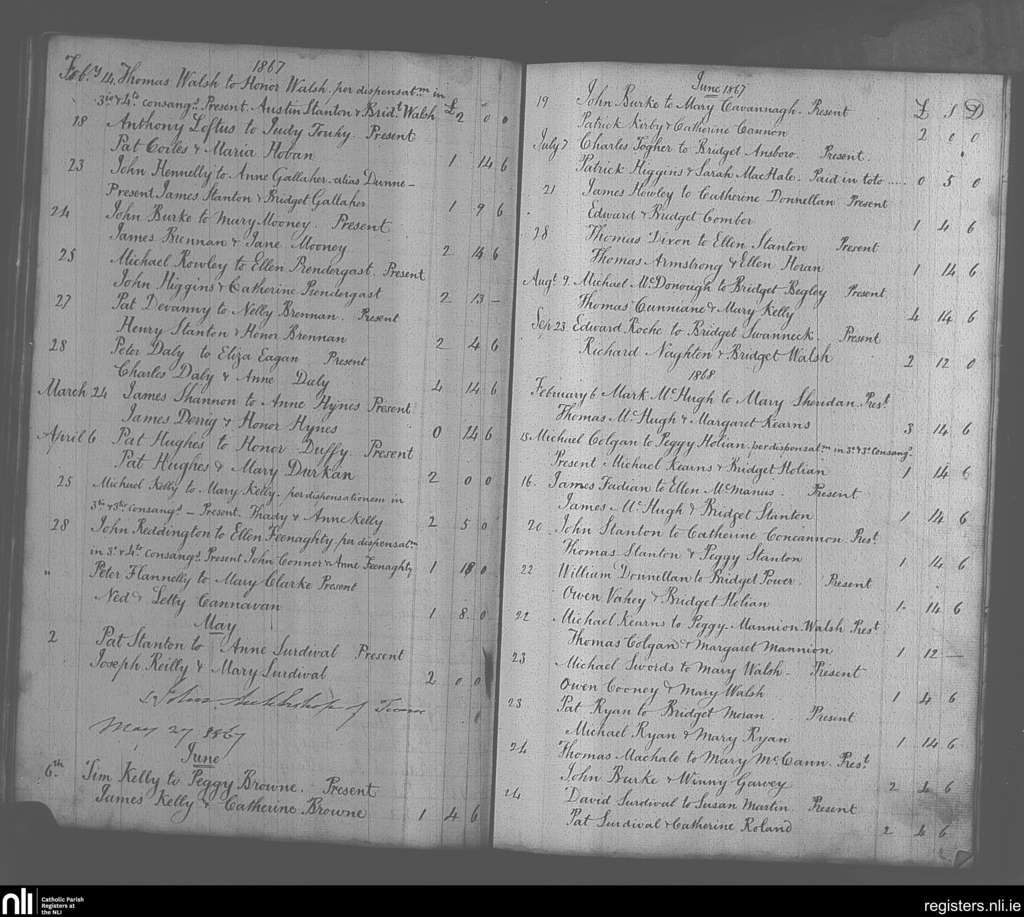 1867
Feb.y 14. Thomas Walsh to Honor Walsh. per dispensat.m in
3io & 4to consang.s Present. Austin Stanton & Brid.t Walsh £2 0 0
18 Anthony Loftus to Judy Touhy Present
Pat Coiles & Maria Hoban 1 14 6
23 John Hennelly to Anne Gallaher. alias Dunne –
Present James Stanton & Bridget Gallaher 1 9 6
24 John Burke to Mary Mooney. Present
James Brennan & Jane Mooney 2 14 6
25 Michael Rowley to Ellen Prendergast. Present
John Higgins & Catherine Prendergast 2 13 –
27 Pat Devanny to Nelly Brennan. Present
Henry Stanton & Honor Brennan 2 4 6
28 Peter Daly to Eliza Eagan Present
Charles Daly & Anne Daly 4 14 6
March 24 James Shannon to Anne Hynes Present
James Derrig & Honor Hynes 0 14 6
April 6 Pat Hughes to Honor Duffy. Present
Pat Hughes & Mary Durkan 2 0 0
25 Michael Kelly to Mary Kelly. per dispensationem in
consang.s – Present. Thady & Anne Kelly 2 5 0
28 John Reddington to Ellen Feenaghty per dispensat.m
in 3o & 4to consang.s Present John Connor & Anne Feenaghty 1 10 0
" Peter Flannelly to Mary Clarke Present
Ned & Letty Cannavan 1 8 0
May
2 Pat Stanton to Anne Surdival Present
Joseph Reilly & Mary Surdival 2 0 0
John Archbishop of Tuam
May 27 1867
June
6th Tim Kelly to Peggy Browne. Present
James Kelly & Catherine Browne 1 4 6
June 1867
£ S D
19 John Burke to Mary Cavannagh. Present
Patrick Kirby & Catherine Cannon 2 0 0
July 7 Charles Togher to Bridget Ansboro. Present.
Patrick Higgins & Sarah MacHale. Paid in toto .... 0 5 0
21 James Howley to Catherine Donnellan Present
Edward & Bridget Comber 1 4 6
28 Thomas Dixon to Ellen Stanton Present
Thomas Armstrong & Ellen Horan 1 14 6
Augt 9. Michael McDonough to Bridget Begley Present
Thomas Cunniane & Mary Kelly 4 14 6
Sep 23 Edward Roche to Bridget Swanneck. Present
Richard Naghten & Bridget Walsh 2 12 0
1868
February 6 Mark McHugh to Mary Sheredan. Prest
Thomas McHugh & Margaret Kearns 3 14 6
15 Michael Colgan to Peggy Holian. per dispensat.m in consang.s
Present Michael Kearns & Bridget Holian 1 14 6
16. James Fadian to Ellen McManus. Present
James McHugh & Bridget Stanton 1 14 6
20 John Stanton to Catherine Concannon Prest
Thomas Stanton & Peggy Stanton 1 4 6
22 William Donnellan to Bridget Power. Present
Owen Vahey & Bridget Holian 1 14 6
22 Michael Kearns to Peggy Mannion Walsh Prest
Thomas Colgan & Margaret Mannion 1 12 –
23 Michael Swords to Mary Walsh. Present
Owen Cooney & Mary Walsh 1 4 6
23 Pat Ryan to Bridget Moran. Present
Michael Ryan & Mary Ryan 1 14 6
24 Thomas Machale to Mary McCann. Prest
John Burke & Winny Garvey 2 4 6
24 David Surdival to Susan Martin. Present
Pat Surdival & Catherine Roland 2 4 6
nli Catholic Parish
Registers at
the NLI
registers.nli.ie